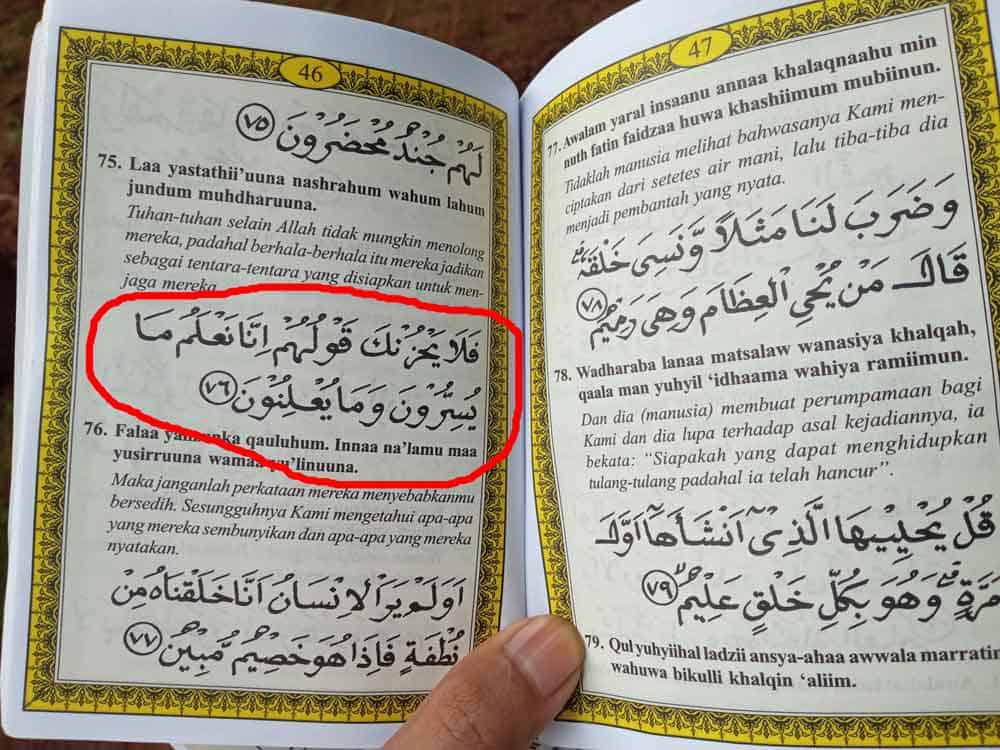 46
لَهُمْ جُنْدٌ مُّحْضَرُوْنَ ٧٥
75. Laa yastathii'uuna nashrahum wahum lahum
jundum muhdharuuna.
Tuhan-tuhan selain Allah tidak mungkin menolong
mereka, padahal berhala-berhala itu mereka jadikan
sebagai tentara-tentara yang disiapkan untuk men-
jaga mereka
فَلَا يَحْزُنْكَ قَوْلُهُمْ اِنَّا نَعْلَمُ مَا
يُسِرُّوْنَ وَمَا يُعْلِنُوْنَ ٧٦
76. Falaa qauluhum. Innaa na'lamu maa
yusirruuna wamaa
Maka janganlah perkataan mereka menyebabkanmu
bersedih. Sesungguhnya Kami mengetahui apa-apa
yang mereka sembunyikan dan apa-apa yang mereka
nyatakan.
اَوَلَمْ يَرَ الْاِنْسَانُ اَنَّا خَلَقْنَاهُ مِنْ
نُّطْفَةٍ فَاِذَا هُوَ خَصِيْمٌ مُّبِيْنٌ ٧٧
47
77. Awalam yaral insaanu annaa khalaqnaahu min
nuth fatin faidzaa huwa khashiimum mubiinun.
Tidaklah manusia melihat bahwasanya Kami men-
ciptakan dari setetes air mani, lalu tiba-tiba dia
menjadi pembantah yang nyata.
وَضَرَبَ لَنَا مَثَلًا وَّنَسِيَ خَلْقَهٗ
قَالَ مَنْ يُّحْيِ الْعِظَامَ وَهِيَ رَمِيْمٌ ٧٨
78. Wadharaba lanaa matsalaw wanasiya khalqah,
qaala man yuhyil 'idhaama wahiya ramiimun.
Dan dia (manusia) membuat perumpamaan bagi
Kami dan dia lupa terhadap asal kejadiannya, ia
bekata: "Siapakah yang dapat menghidupkan
tulang-tulang padahal ia telah hancur".
قُلْ يُحْيِيْهَا الَّذِيْٓ اَنْشَاَهَآ اَوَّلَ
مَرَّةٍ وَهُوَ بِكُلِّ خَلْقٍ عَلِيْمٌ ٧٩
79. Qul yuhyiihal ladzii ansya-ahaa awwala marratin
wahuwa bikulli khalqin 'aliim.